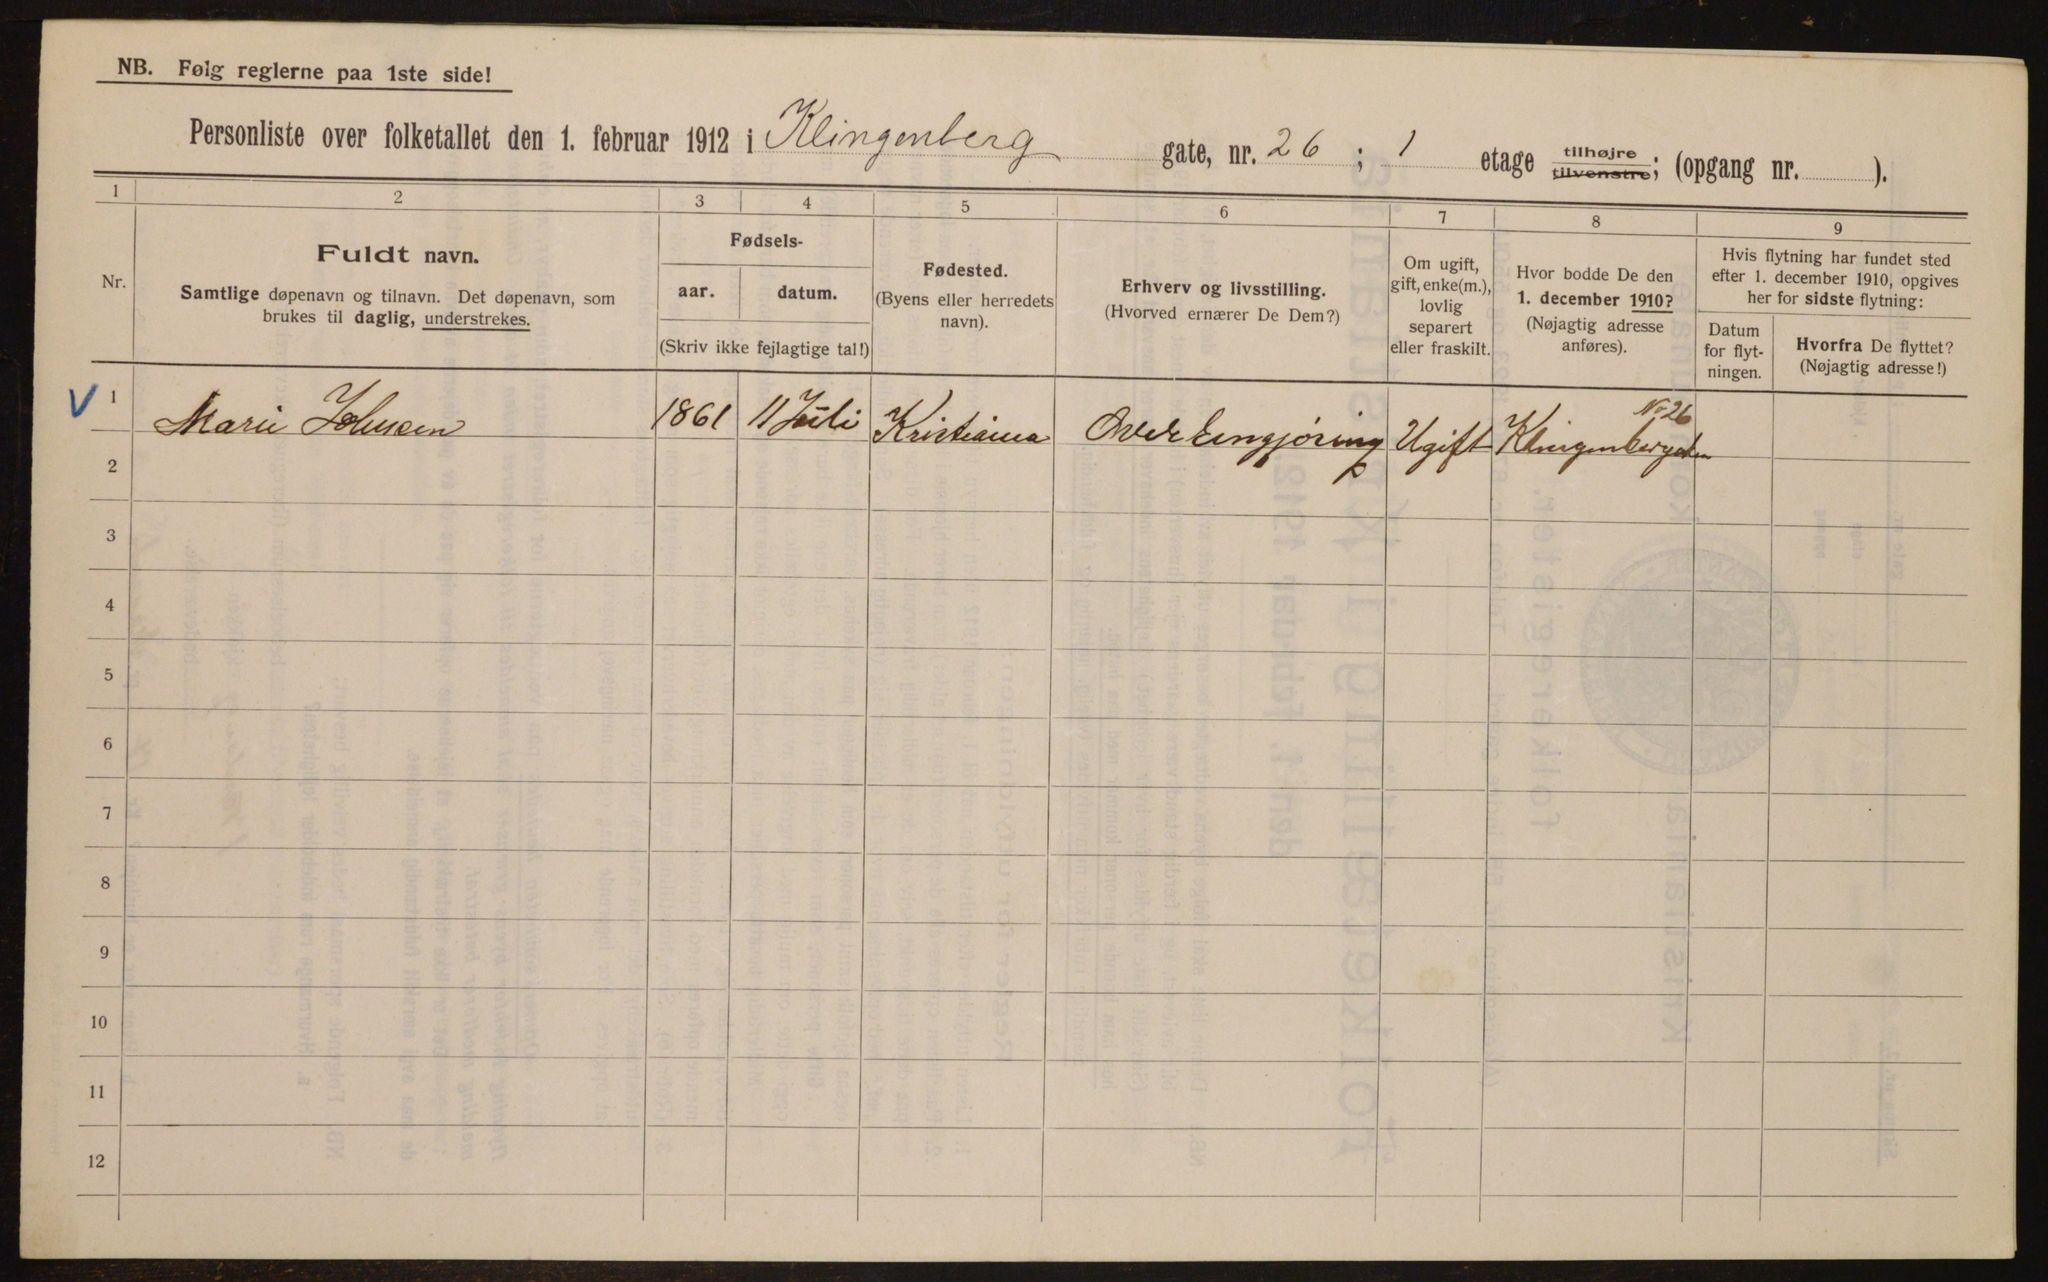 NB. Følg reglerne paa 1ste side!
Personliste over folketallet den 1. februar 1912 i Klingenberg gate, nr. 26 ; 1 etage tilhøjre tilvenstre; (opgang nr. ).
1 2 3 4 5 6 7 8 9
Nr.
Fuldt navn.
Samtlige døpenavn og tilnavn. Det døpenavn, som
brukes til daglig, understrekes.
Fødsels-
aar. datum.
(Skriv ikke fejlagtige tal!)
Fødested.
(Byens eller herredets
navn).
Erhverv og livsstilling.
(Hvorved ernærer De Dem?)
Om ugift,
gift, enke(m.),
lovlig
separert
eller fraskilt.
Hvor bodde De den
1. december 1910?
(Nøjagtig adresse
anføres).
Hvis flytning har fundet sted
efter 1. december 1910, opgives
her for sidste flytning:
Datum
for flyt-
ningen.
Hvorfra De flyttet?
(Nøjagtig adresse!)
V 1 Marie Johnsen 1861 11 Juli Kristiania Ugift Klingenberggaten No 26
2
3
4
5
6
7
8
9
10
11
12